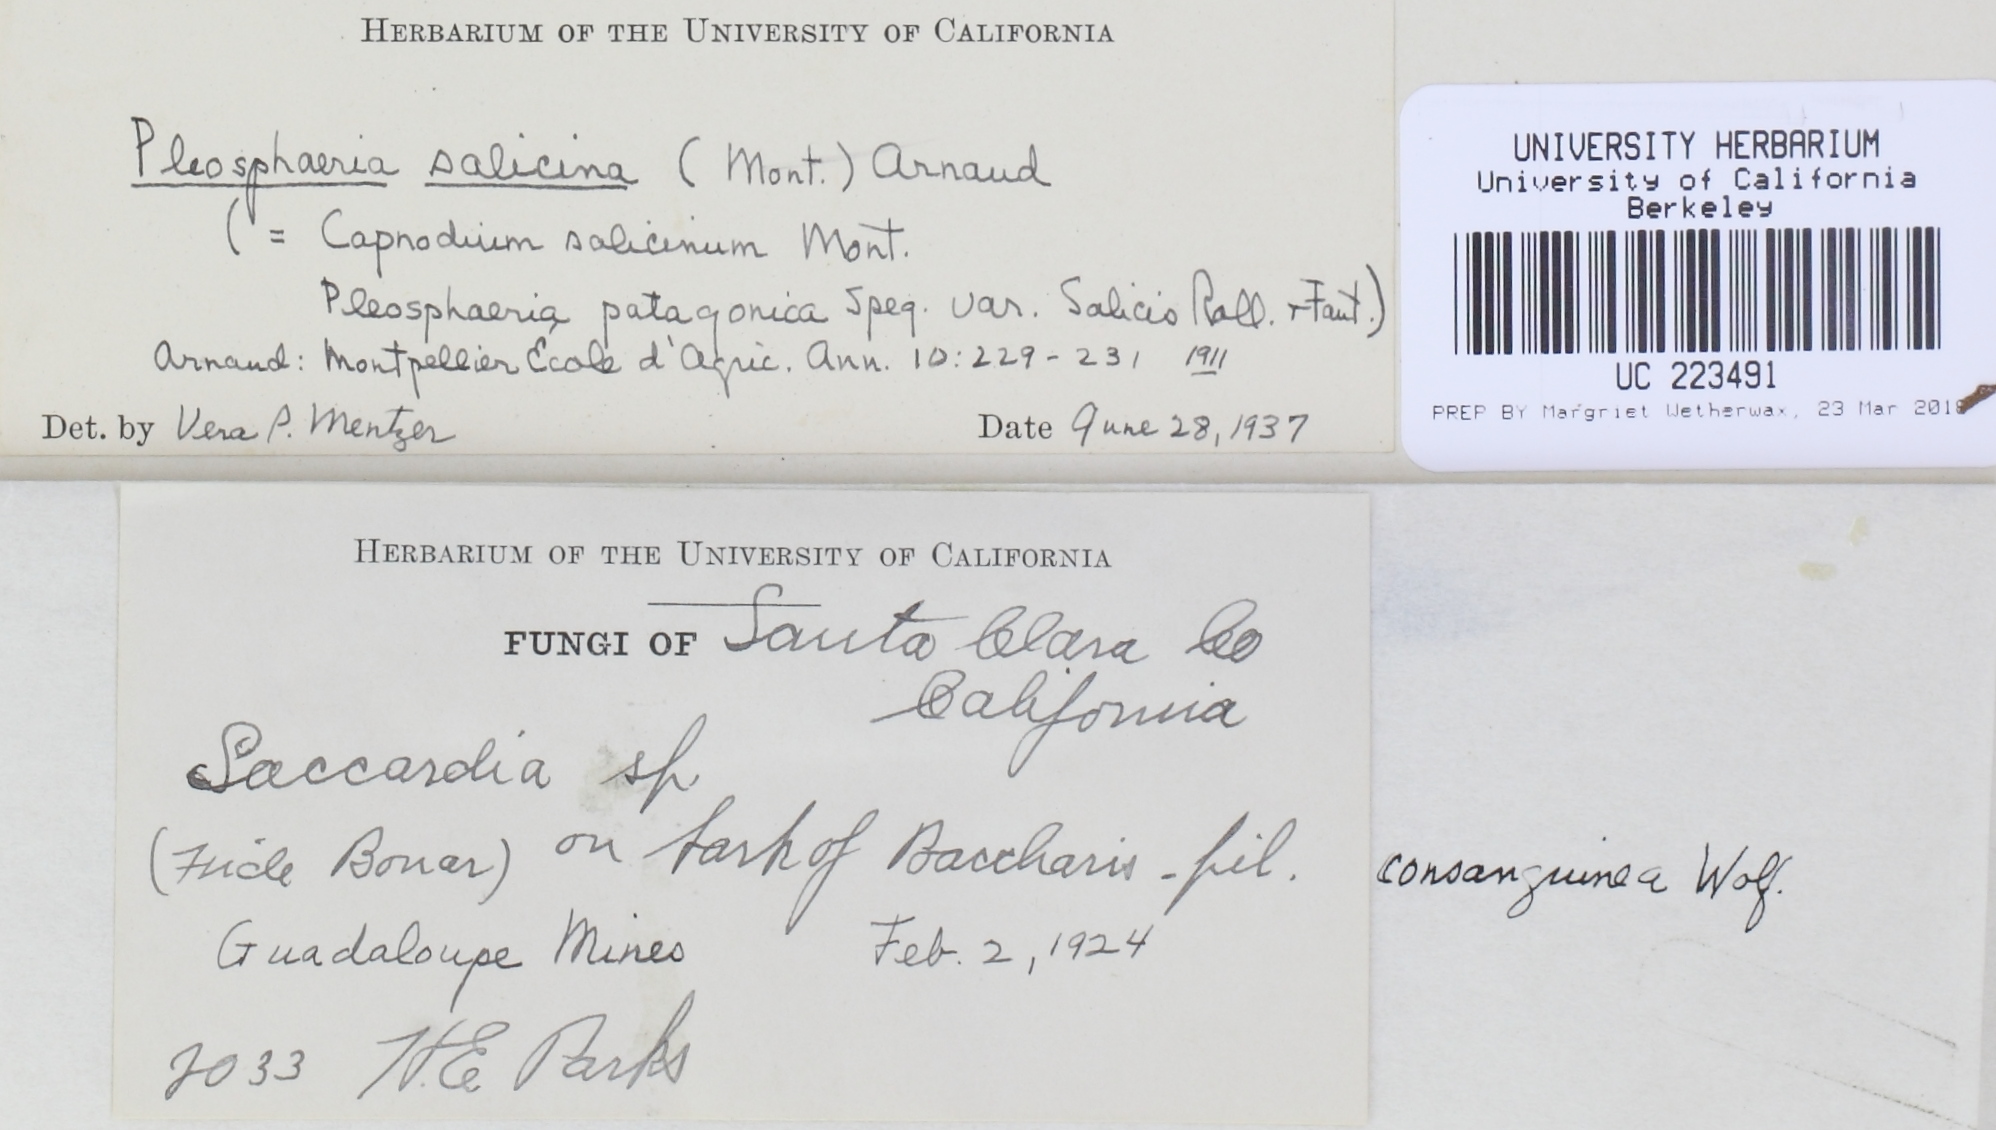 HERBARIUM OF THE UNIVERSITY OF CALIFORNIA
Pleosphaeria salicina (Mont.) Arnaud
(= Capnodium salicinum Mont.
Pleosphaeria patagonica Speg. var. Salicis Roll. + Faut.)
Arnaud: Montpellier École d'Agric. Ann. 10:229-231 1911
Det. by Vera P. Mentzer Date June 28, 1937
UNIVERSITY HERBARIUM
University of California
Berkeley
UC 223491
PREP BY Margriet Wetherwax, 23 Mar 201
HERBARIUM OF THE UNIVERSITY OF CALIFORNIA
FUNGI OF Santa Clara Co
California
Saccardia sp.
(Fide Bonar) on bark of Baccharis - pil. consanguinea Wolf.
Guadaloupe Mines Feb. 2, 1924
2033 H.E. Parks